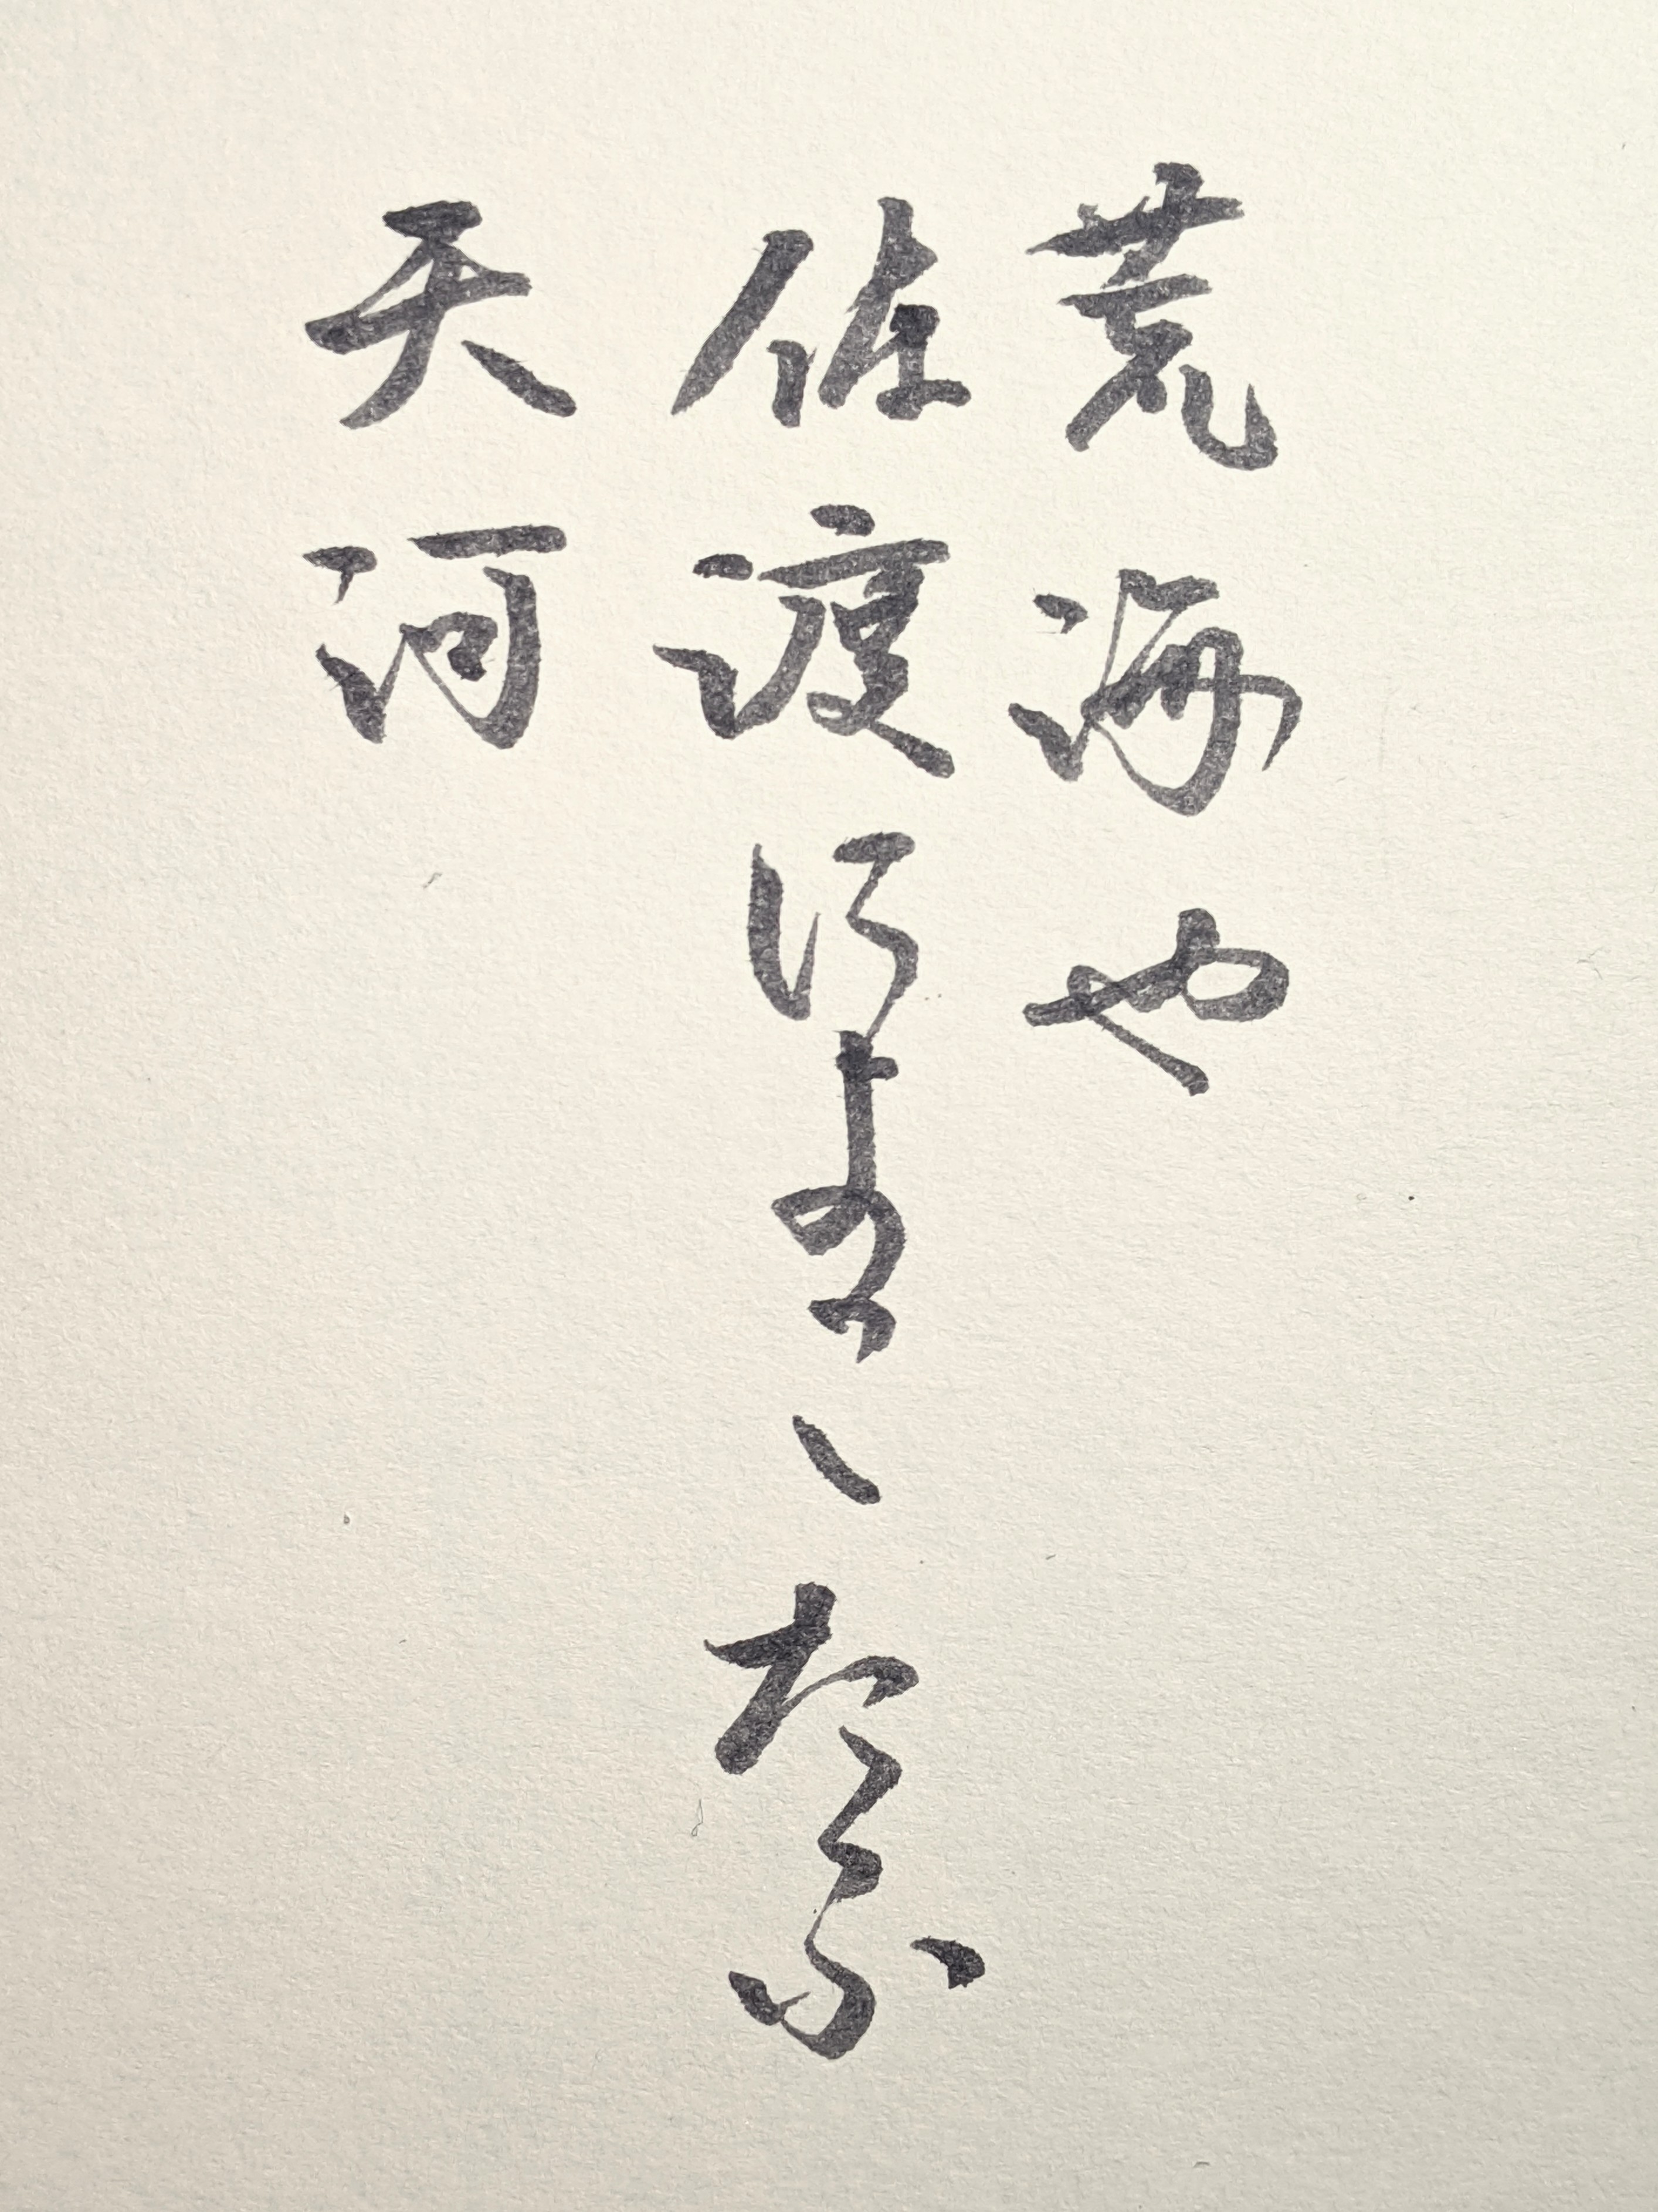 荒海也
佐渡によこたふ
天河